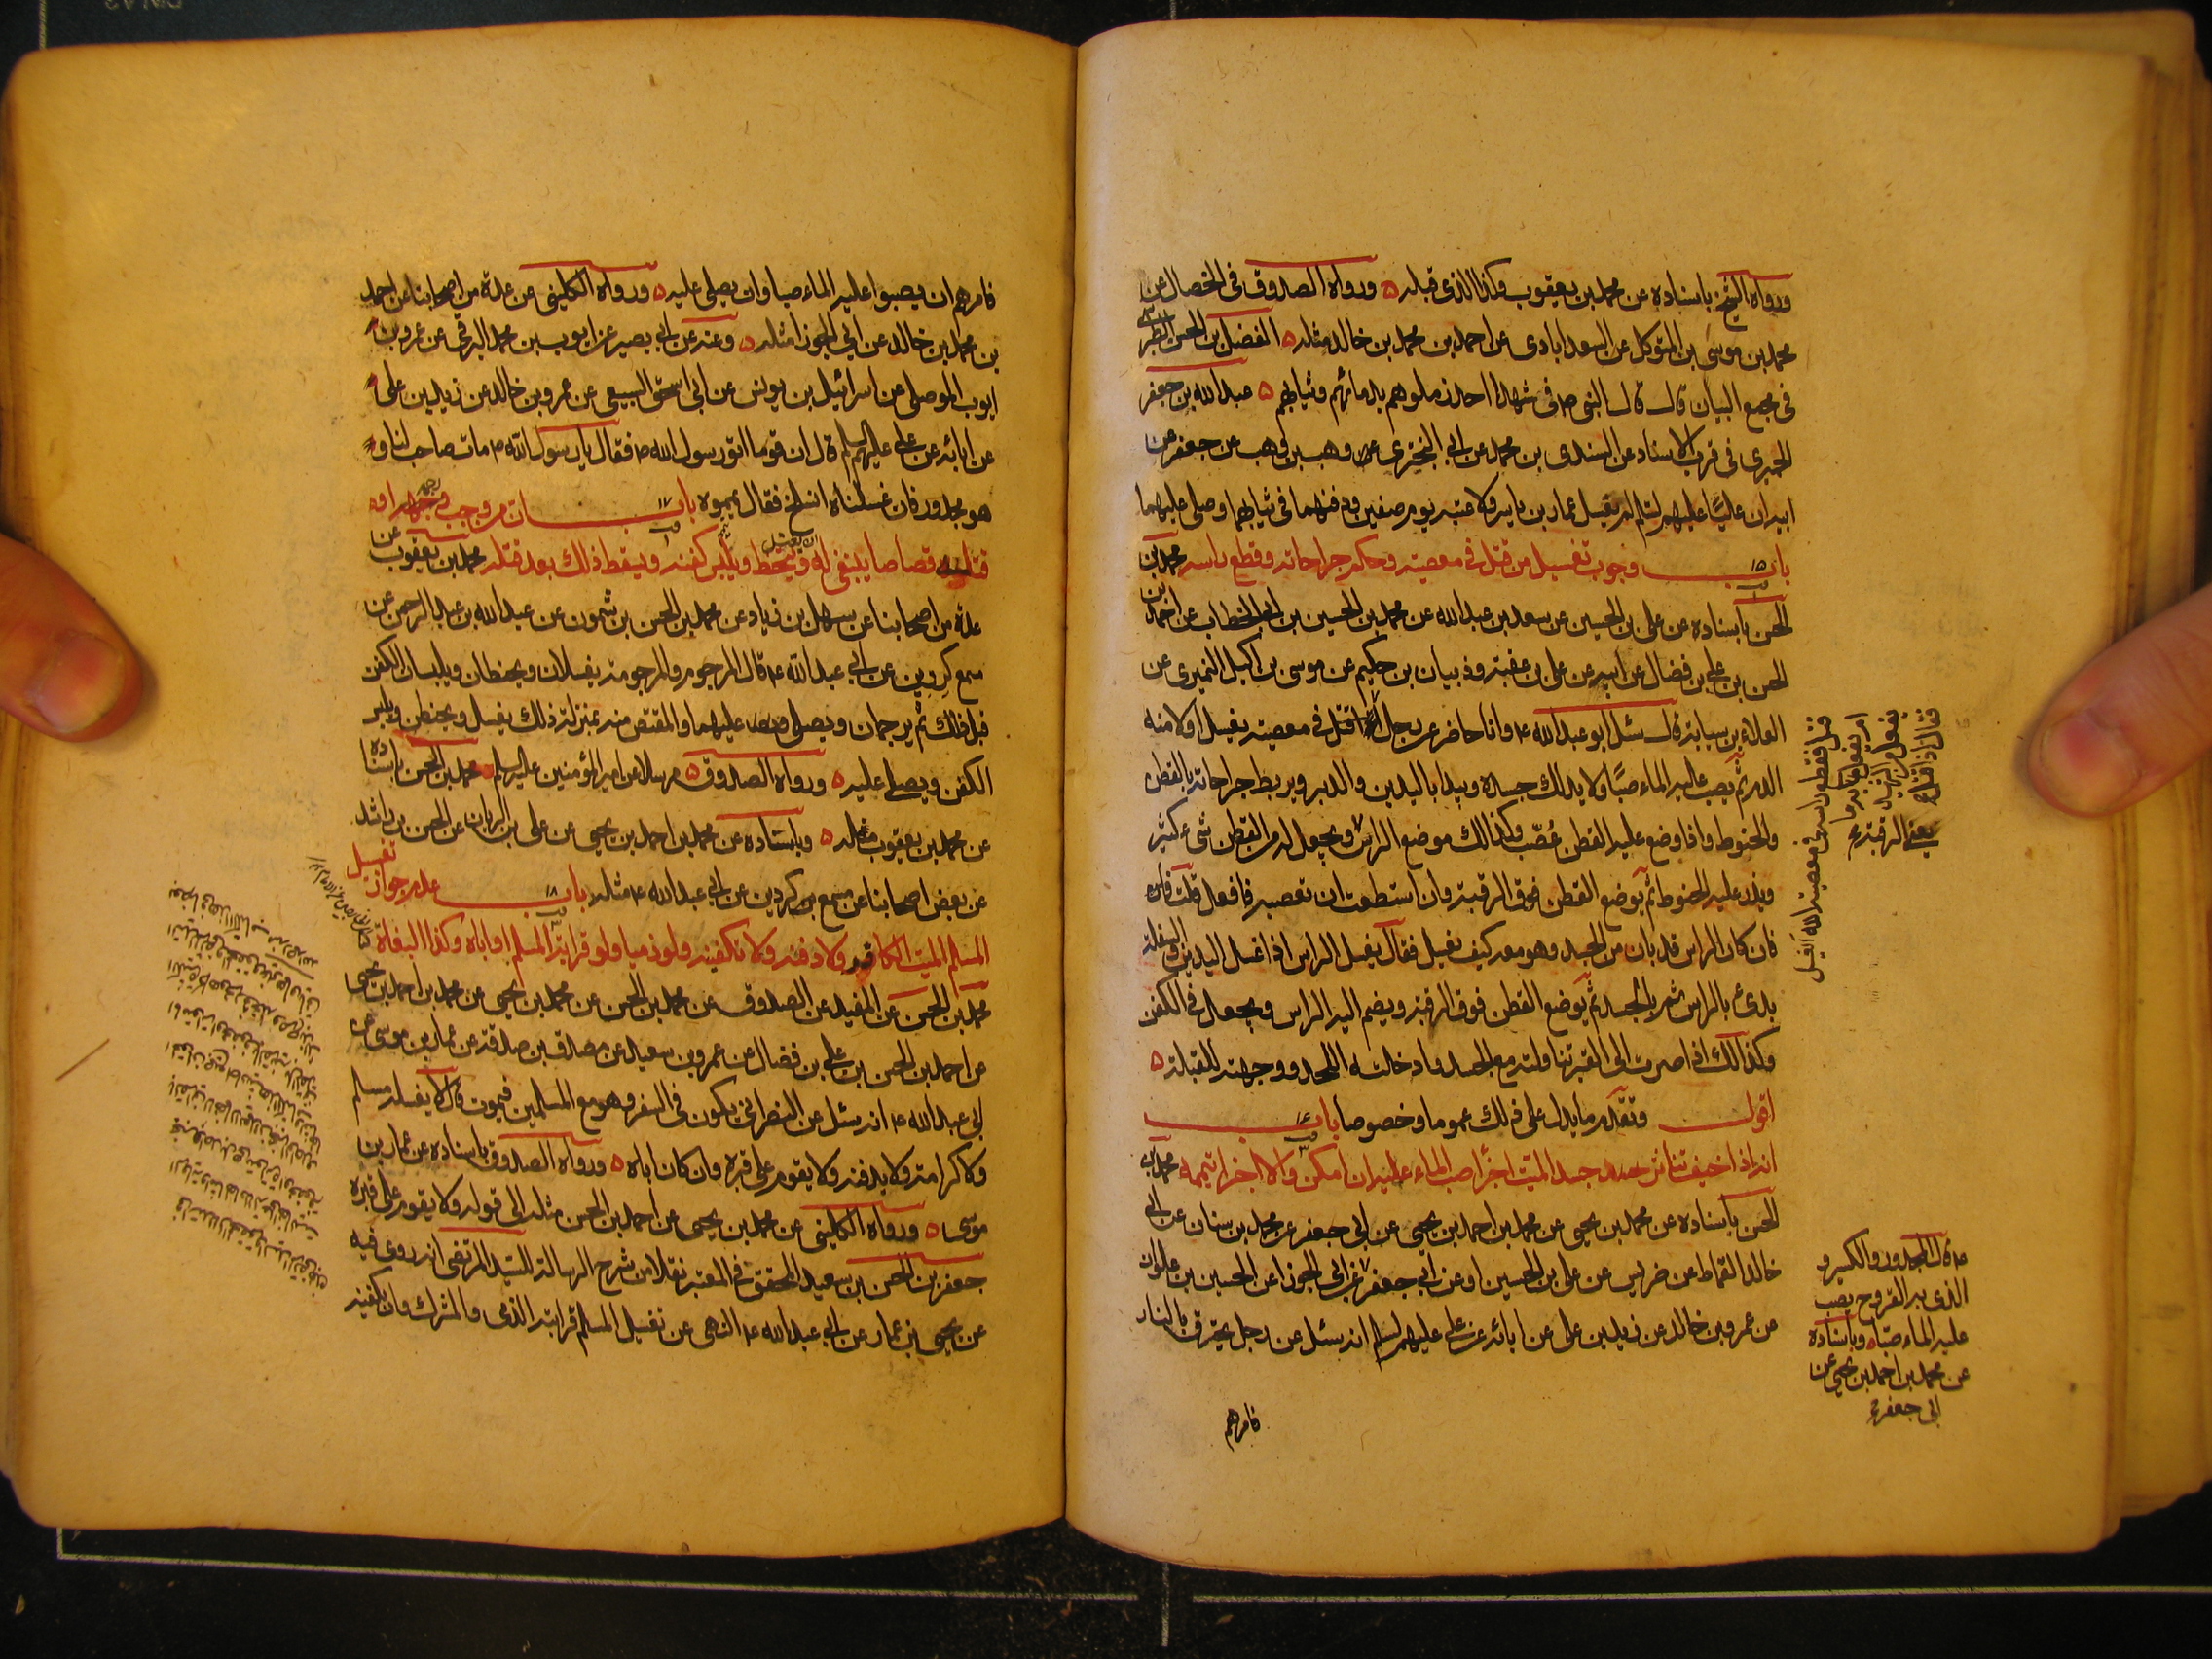 ورواه الشيخ باسناده عن محمد بن يعقوب وكذا الذى قبله ه ورواه الصدوق فى الخصال عن
محمد بن موسى بن المتوكل عن السعدابادى عن احمد بن محمد بن خالد مثله ه الفضل بن الحسن الطبرسى
فى مجمع البيان قال قال النبى ص فى شهداء احد زملوهم بدمائهم وثيابهم ه عبد الله بن جعفر
الحميرى فى قرب الاسناد عن السندى بن محمد عن ابى البخترى وهب بن وهب عن جعفر عن
ابيه ان عليا عليهم السلم لم يغسل عمار بن ياسر ولا عتبه يوم صفين ودفنهما فى ثيابهما وصلى عليهما
باب ١٥ وجوب تغسيل من قتل فى معصيته وحكم جراحاته وقطع راسه محمد بن
الحسن باسناده عن على بن الحسين عن سعد بن عبد الله عن محمد بن الحسين بن ابى الخطاب عن احمد بن
الحسن بن على بن فضال عن ابيه عن على بن عقبة وذبيان بن حكيم عن موسى بن اكيل النميرى عن
العلاء بن سيابة قال سئل ابو عبد الله ع وانا حاضر عن رجل قتل فى معصية يغسل اولا منه
الدم ثم يصب عليه الماء صبا ولا يدلك جسده ويبدا باليدين والدبر ويربط جراحاته بالقطن
والحنوط واذا وضع عليه القطن عصب وكذلك موضع الراس ويجعل له من القطن شى كثير
ويذر عليه الحنوط ثم يوضع القطن فوق الرقبة وان استطعت ان تعصبه فافعل قلت فان
كان الراس قد بان من الجسد وهو معه كيف يغسل فقال يغسل الراس اذا غسل اليدين والسفلة
بدىء بالراس ثم بالجسد ثم يوضع القطن فوق الرقبة ويضم اليه الراس ويجعل فى الكفن
وكذلك اذا صرت الى القبر تناولته مع الجسد وادخلته اللحد ووجهته للقبلة ه
اقول وتقدم ما يدل على ذلك عموما وخصوصا باب ١٦
انه اذا خيف تناثر جسد الميت اجزأ صب الماء عليه ان امكن والا اجزا تيممه محمد بن
الحسن باسناده عن محمد بن يحيى عن محمد بن احمد بن يحيى عن ابى جعفر عن محمد بن سنان عن ابى
خالد القماط عن ضريس عن على بن الحسين او عن ابى جعفر عن ابى الجوزا عن الحسين بن علوان
عن عمرو بن خالد عن زيد بن على عن ابائه عن على عليهم السلم انه سئل عن رجل يحترق بالنار
فامرهم
فقال اذا قتل فى
معصية
يغسل
يعنى الرقبة
قتل فقطع راسه فى معصية الله ايغسل
ع قال المجدور والكسير و
الذى به القروح يصب
عليه الماء صبا ه وباسناده
عن محمد بن احمد بن يحيى عن
ابى جعفر
فامرهم ان يصبوا عليه الماء صبا وان يصلى عليه ه ورواه الكلينى عن عدة من اصحابنا عن احمد
بن محمد بن خالد عن ابى الجوزا مثله ه وعنه عن ابى بصير عن ايوب بن محمد الرقى عن عمرو بن
ايوب الموصلى عن اسرائيل بن يونس عن ابى اسحق السبيعى عن عمرو بن خالد عن زيد بن على
عن ابائه عن على عليهم السلم قال ان قوما اتوا رسول الله ص فقالوا يا رسول الله ص مات صاحب لنا و
هو مجدور فان غسلناه انسلخ فقال يمموه باب ١٧ ان من وجب رجمه او
قتله قصاصا ينبغى له ان يغتسل ويتحنط ويلبس كفنه ويسقط ذلك بعد قتله محمد بن يعقوب عن
عدة من اصحابنا عن سهل بن زياد عن محمد بن الحسن بن شمون عن عبد الله بن عبد الرحمن عن
مسمع كردين عن ابى عبد الله ع قال المرجوم والمرجومة يغسلان ويحنطان ويلبسان الكفن
قبل ذلك ثم يرجمان ويصلى عليهما والمقتص منه بمنزلة ذلك يغسل ويحنط ويلبس
الكفن ويصلى عليه ه ورواه الصدوق ه مرسلا عن امير المؤمنين عليه السلم محمد بن الحسن باسناده
عن محمد بن يعقوب مثله ه وباسناده عن محمد بن احمد بن يحيى عن على بن الريان عن الحسن بن راشد
عن بعض اصحابنا عن مسمع بن كردين عن ابى عبد الله ع مثله باب ١٨ عدم جواز تغسيل
المسلم الميت الكافر ولا دفنه ولا تكفينه ولو ذميا ولو قرابة المسلم او اباه وكذا البغاة
محمد بن الحسن عن المفيد عن الصدوق عن محمد بن الحسن عن محمد بن يحيى عن محمد بن احمد بن يحيى
عن احمد بن الحسن بن على بن فضال عن عمرو بن سعيد عن مصدق بن صدقة عن عمار بن موسى عن
ابى عبد الله ع انه سئل عن النصرانى يكون فى السفر وهو مع المسلمين فيموت قال لا يغسله مسلم
ولا كرامة ولا يدفنه ولا يقوم على قبره وان كان اباه ه ورواه الصدوق باسناده عن عمار بن
موسى ه ورواه الكلينى عن محمد بن يحيى عن احمد بن الحسن مثله الى قوله ولا يقوم على قبره
جعفر بن الحسن بن سعيد المحقق فى المعتبر نقلا من شرح الرسالة للسيد المرتضى انه روى فيه
عن يحيى بن عمار عن ابى عبد الله ع النهى عن تغسيل المسلم قرابته الذمى والمشرك وان يكفنه